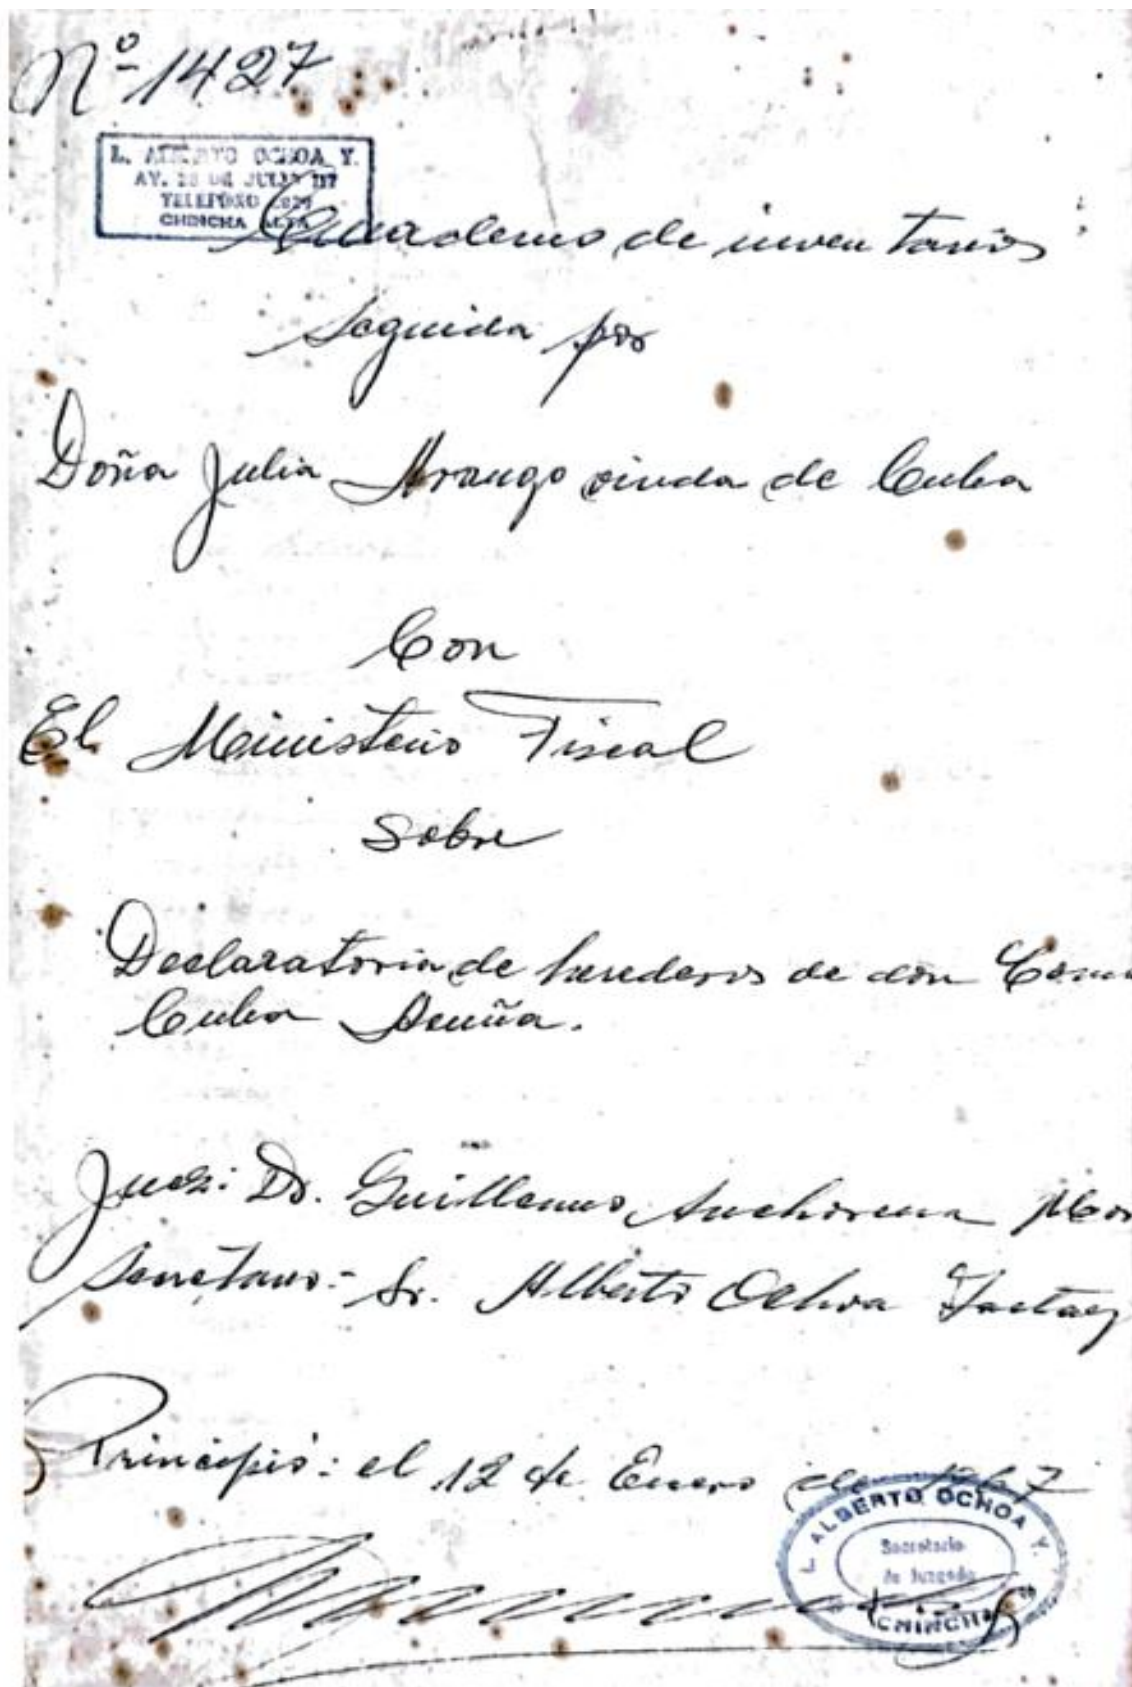 Nº 1427
L. ALBERTO OCHOA Y.
AV. 28 DE JULIO
TELEFONO
CHINCHA ALTA
Cuaderno de inventarios
Seguida por
Doña Julia Arango viuda de Cuba
Con
El Ministerio Fiscal
Sobre
Declaratoria de herederos de don
Cuba Acuña.
Juez: Dr. Guillermo Anchorena
Secretario:- Sr. Alberto Ochoa
Principió: el 12 de Enero de 1967
L. ALBERTO OCHOA Y.
Secretario
de Juzgado
CHINCHA